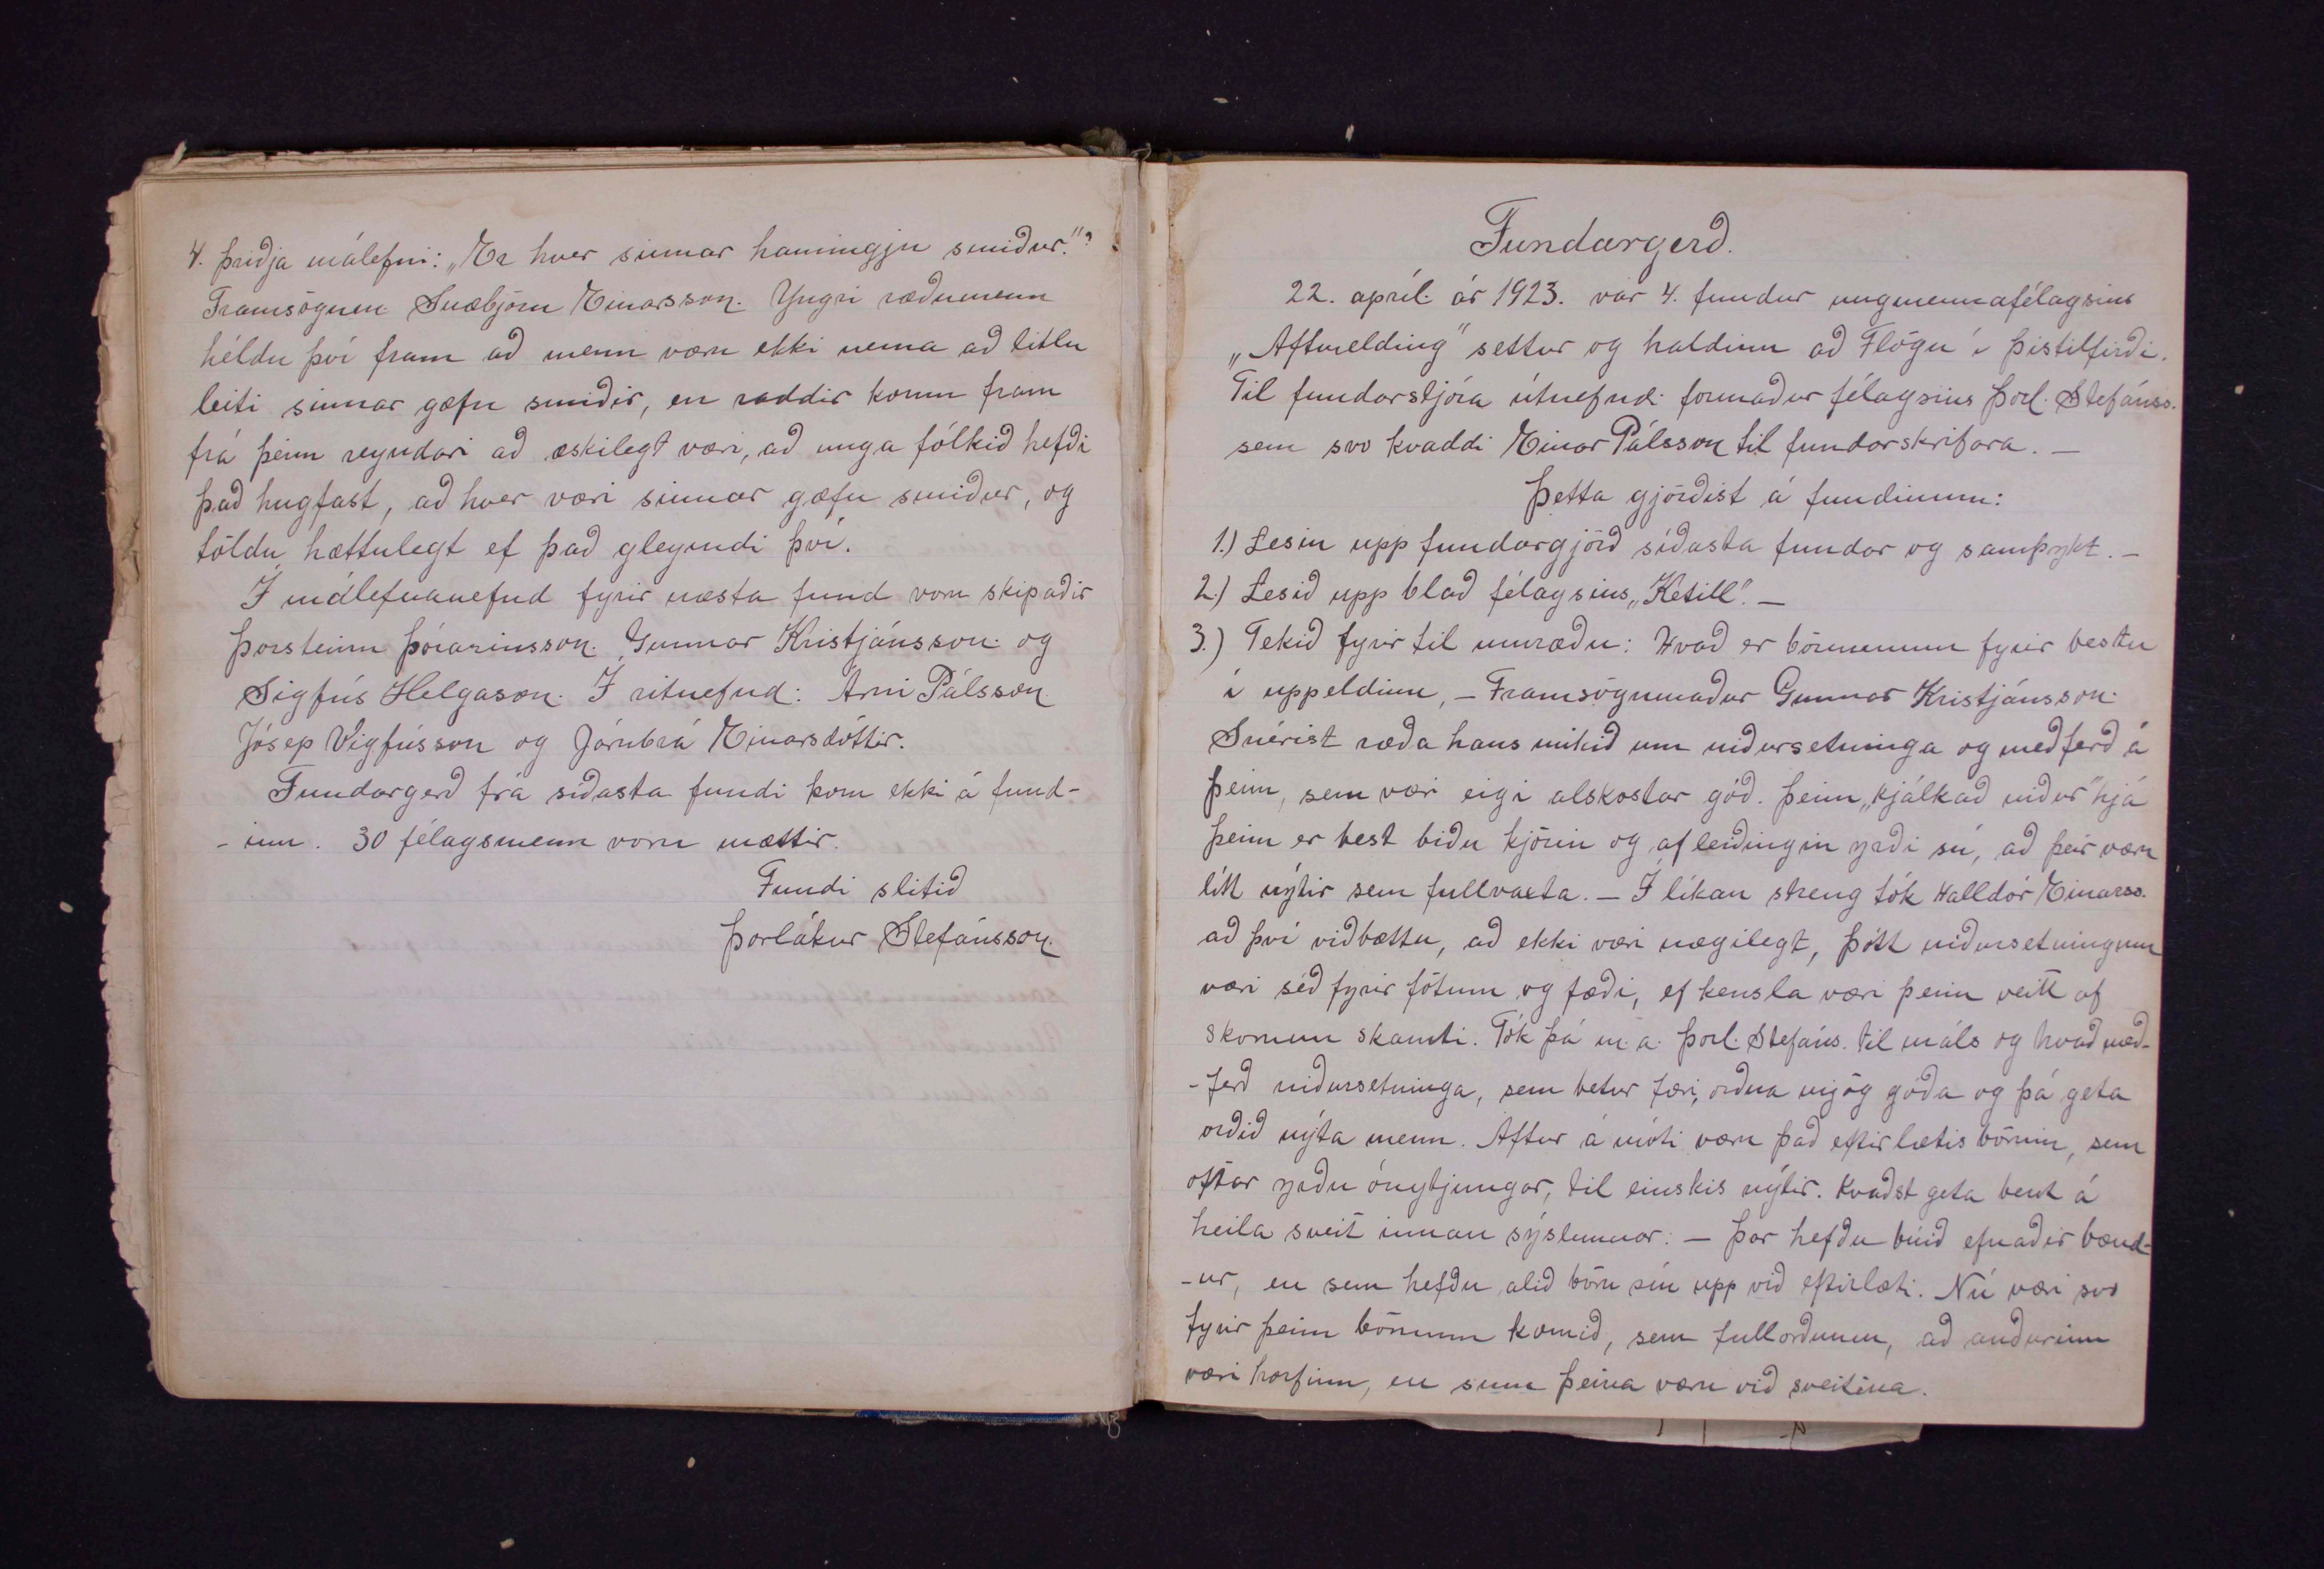 4. Þriðja málefni: „Er hver sinnar hamingju smiður."?
Framsögum. Snæbjörn Einarsson. Yngri ræðumenn
héldu því fram að menn væru ekki nema að litlu
leiti sinnar gæfu smiðir, en raddir komu fram
frá þeim reyndari að æskilegt væri, að unga fólkið hefði
það hugfast, að hver væri sinnar gæfu smiður, og
töldu hættulegt ef það gleymdi því.
Í málefnanefnd fyrir næsta fund voru skipaðir
Þorsteinn Þórarinsson. Gunnar Kristjánsson og
Sigfús Helgason. Í ritnefnd: Árni Pálsson
Jósep Vigfússon og Járnbrá Einarsdóttir.
Fundargerð frá síðasta fundi kom ekki á fund-
-inn. 30 félagsmenn voru mættir.
Fundi slitið
Þorlákur Stefánsson.
Fundargerð.
22. apríl ár 1923. var 4. fundur ungmennafélagsins
„Aftureldíng" settur og haldinn að Flögu í Þistilfirði.
Til fundarstjóra útnefnd. formaður félagsins Þorl. Stefánss.
sem svo kvaddi Einar Pálsson til fundarskrifara. –
Þetta gjörðist á fundinum:
1.) Lesin upp fundargjörð síðasta fundar og samþykt. –
2.) Lesið upp blað félagsins „Ketill". –
3.) Tekið fyrir til umræðu: Hvað er börnunum fyrir bestu
í uppeldinu, – Framsögumaður Gunnar Kristjánsson.
Snérist ræða hans mikið um niðursetninga og meðferð á
þeim, sem væri eigi alskostar góð. Þeim „kjálkað niður" hjá
þeim er best biðu kjörin og afleiðingin yrði sú, að þeir væru
lítt nýtir sem fullvaxta. – Í líkan streng tók Halldór Einarss.
að því viðbættu, að ekki væri nægilegt, þótt niðursetningum
væri séð fyrir fötum og fæði, ef kensla væri þeim veitt af
skornum skamti. Tók þá m.a. Þorl. Stefáns. til máls og kvað með-
-ferð niðursetninga, sem betur færi, orðna mjög góða og þá geta
orðið nýta menn. Aftur á móti væru það eftirlætis börnin, sem
oftar yrðu ónytjungar, til einskis nýtir. Kvaðst geta bent á
heila sveit innan sýslunnar: – Þar hefðu búið efnaðir bænd-
-ur, en sem hefðu alið börn sín upp við eftirlæti. Nú væri svo
fyrir þeim börnum komið, sem fullorðnum, að auðurinn
væri horfinn, en sum þeirra væru við sveitina.